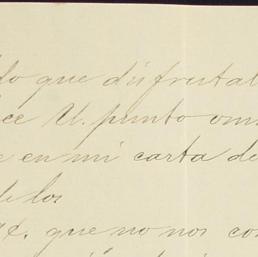 lo que disfrutab
ce U. punto om
e en mi carta de
de los
que no nos con